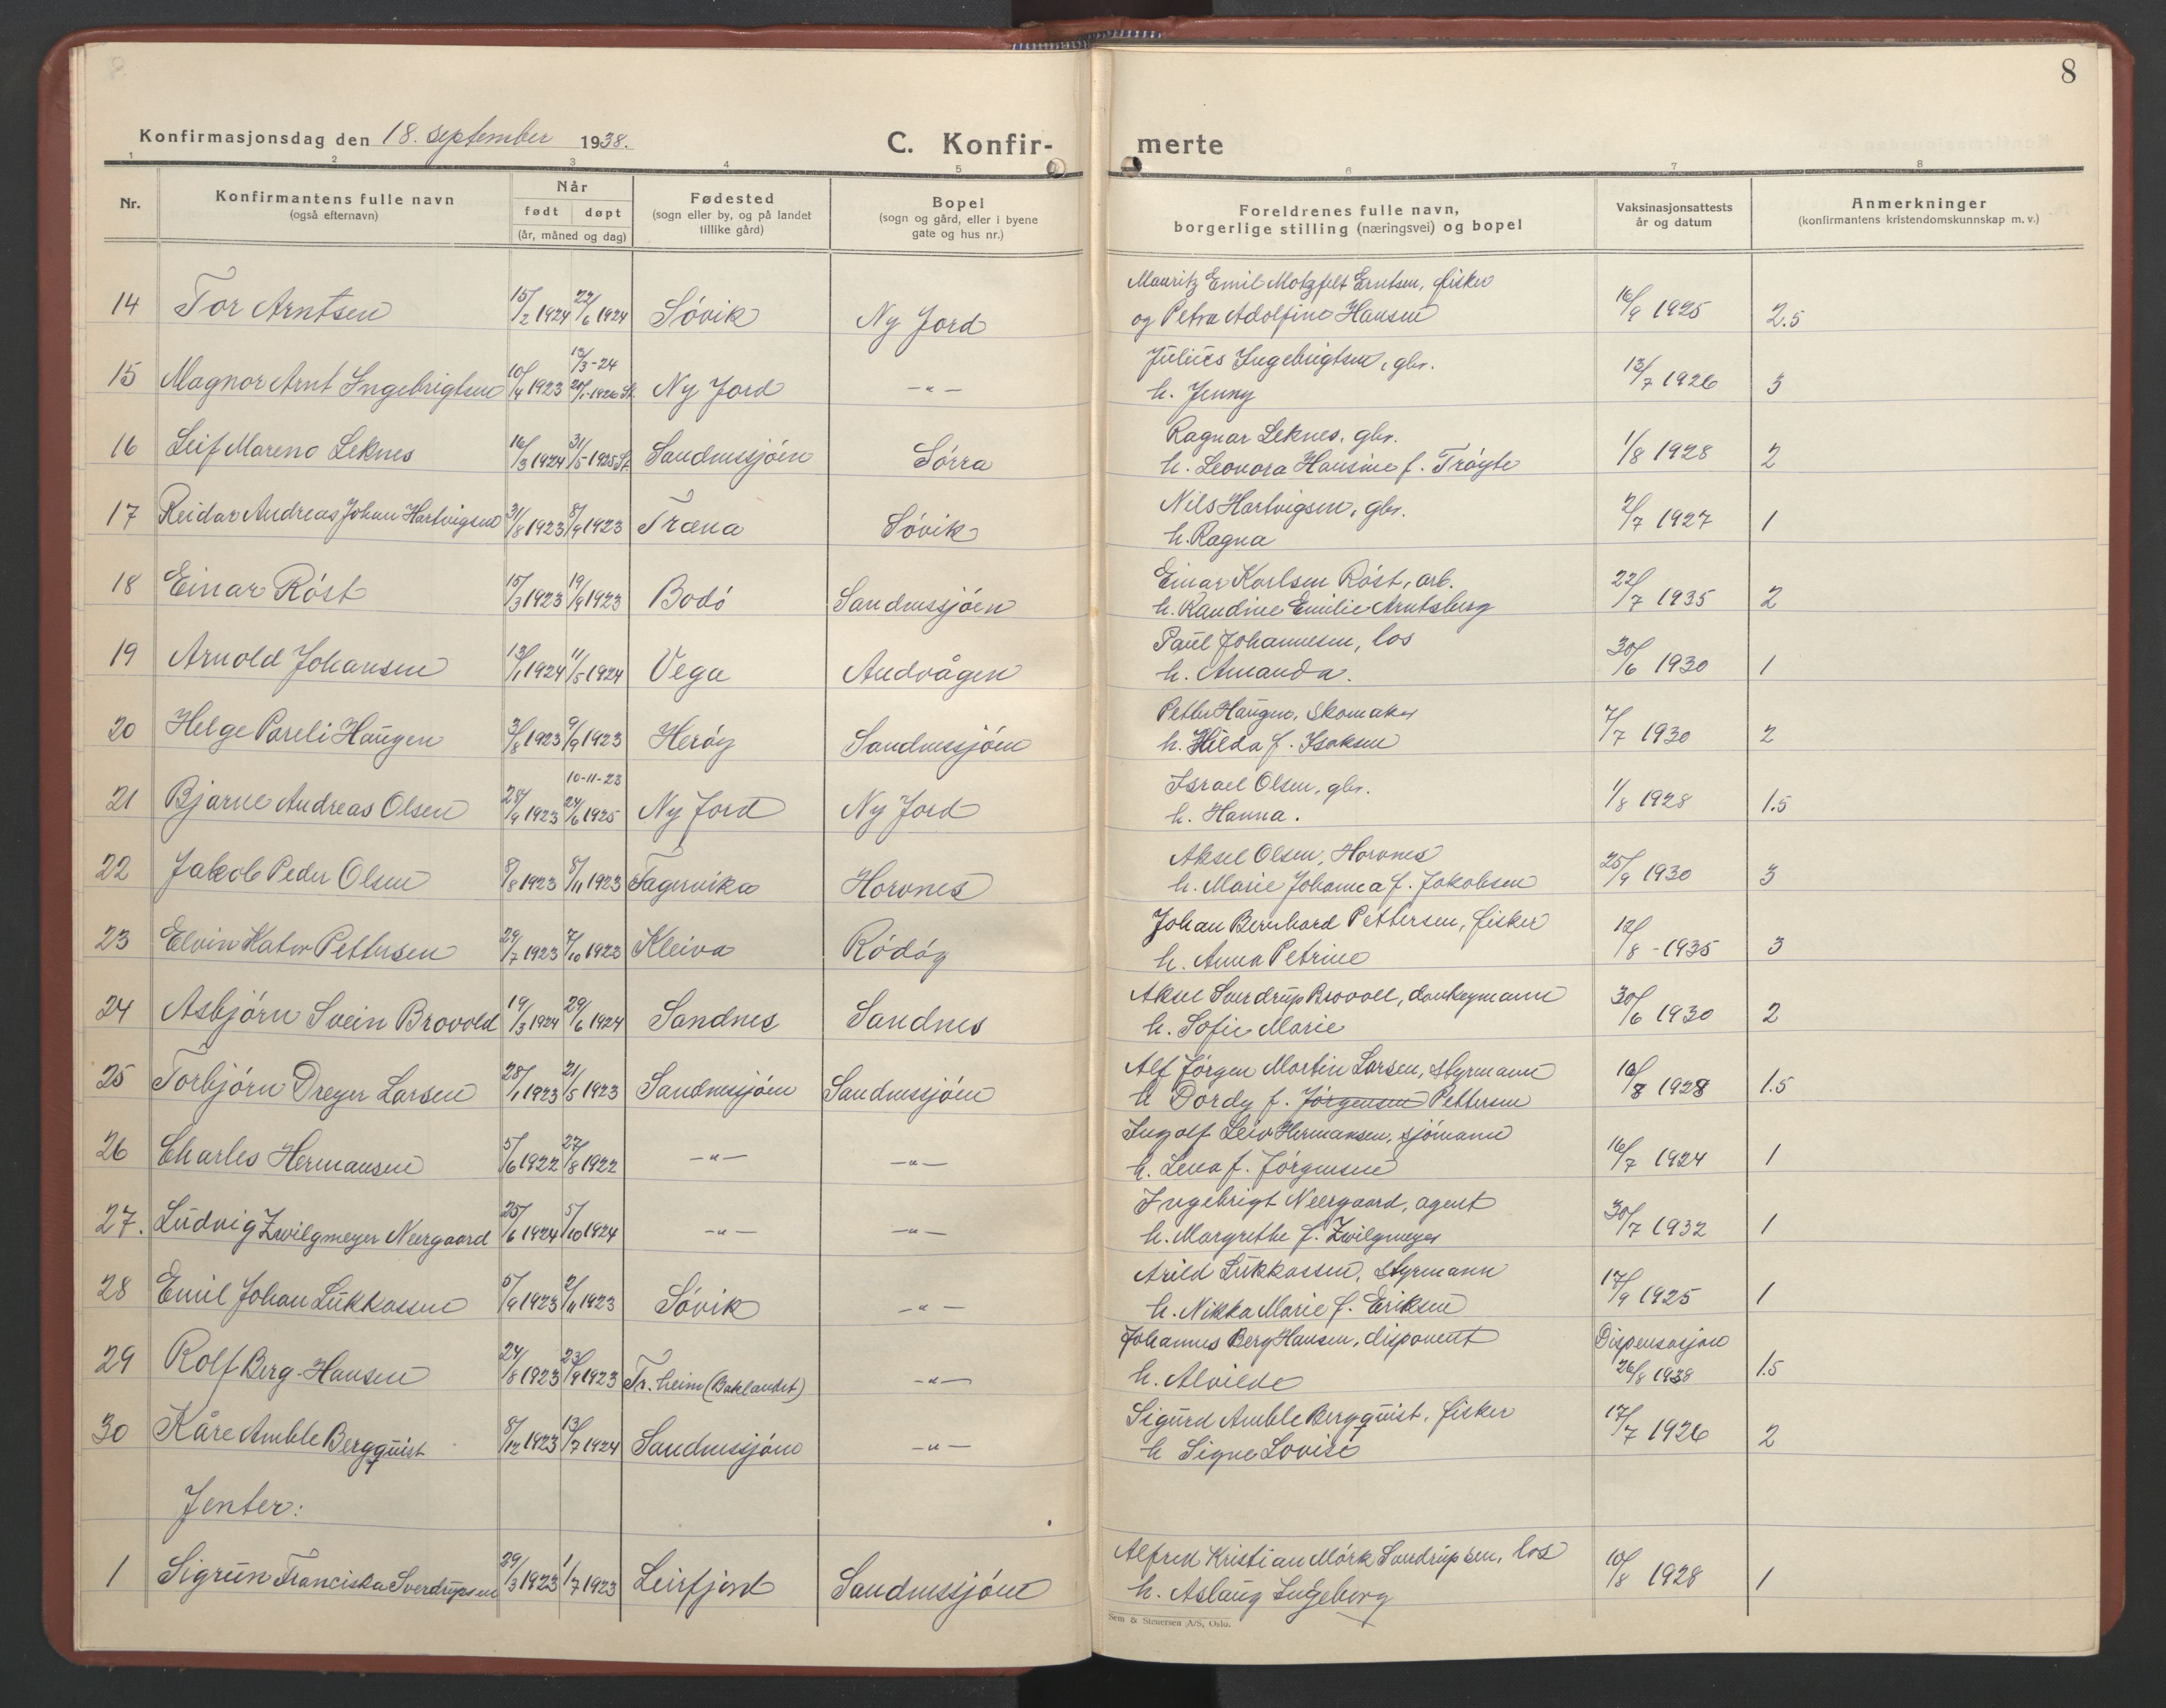 8
Konfirmasjonsdag den 18. september 1938.
C. Konfir-
merte
1 2 3 4 5 6 7 8
Nr.
Konfirmantens fulle navn
(også efternavn)
Når
født døpt
(år, måned og dag)
Fødested
(sogn eller by, og på landet
tillike gård)
Bopel
(sogn og gård, eller i byene
gate og hus nr.)
Foreldrenes fulle navn,
borgerlige stilling (næringsvei) og bopel
Vaksinasjonsattests
år og datum
Anmerkninger
(konfirmantens kristendomskunnskap m. v.)
Mauritz Emil Motzfelt Erntsen, fisker
14 Tor Arntsen 15/2 1924 22/6 1924 Søvik Ny Jord og Petra Adolfine Hansen 16/9 1925 2.5
13/3-24 Julius Ingebrigtsen, gbr.
15 Magnor Arnt Ingebrigtsen 10/4 1923 20/1-1926 St. Ny Jord -"- h. Jenny 13/7 1926 3
Ragnar Leknes, gbr.
16 Leif Mareno Leknes 16/3 1924 31/5-1925 St. Sandnessjøen Sørra h. Leonora Hansine f. Trøyte 1/8 1928 2
Nils Hartvigsen, gbr.
17 Reidar Andreas Johan Hartvigsen 31/8 1923 8/9 1923 Træna Søvik h. Ragna 2/7 1927 1
Einar Karlsen Røst, arb.
18 Einar Røst 15/3 1923 19/9 1923 Bodø Sandnessjøen h. Randine Emilie Arntsberg 22/7 1935 2
Paul Johannesen, los
19 Arnold Johansen 13/1 1924 11/5 1924 Vega Andvågen h. Amanda. 30/6 1930 1
Petter Haugen, Skomaker
20 Helge Pareli Haugen 3/8 1923 9/9 1923 Herøy Sandnessjøen h. Hilda f. Isaksen 7/7 1930 2
10-11-23 Israel Olsen, gbr.
21 Bjarne Andreas Olsen 28/9 1923 24/6 1925 Ny Jord Ny Jord h. Hanna. 1/8 1928 1.5
Aksel Olsen, Horvnes
22 Jakob Peder Olsen 8/8 1923 8/11 1923 Fagervika Horvnes h. Marie Johanna f. Jakobsen 25/9 1930 3
Johan Bernhard Pettersen, fisker
23 Elvin Kator Pettersen 29/7 1923 7/10 1923 Kleiva Rødøy h. Anna Petrine 12/8-1935 3
Aksel Sverdrup Brovoll, donkeymann
24 Asbjørn Svein Brovold 19/3 1924 29/6 1924 Sandnes Sandnes h. Sofie Marie 30/6 1930 2
Alf Jørgen Martin Larsen, styrmann
25 Torbjørn Dreyer Larsen 28/1 1923 21/5 1923 Sandnessjøen Sandnessjøen h Dordy f. Jørgensen Pettersen 10/8 1928 1.5
Ingolf Leiv Hermansen, sjømann
26 Charles Hermansen 5/6 1922 27/8 1922 -"- -"- h. Lena f. Jørgensen 16/7 1924 1
Ingebrigt Neergaard, agent
27. Ludvig Zwilgmeyer Neergaard 25/6 1924 5/10 1924 -"- -"- h. Margrethe f. Zwilgmeyer 30/7 1932 1
Arild Lukkassen, Styrmann
28 Emil Johan Lukkassen 5/9 1923 2/11 1923 Søvik -"- h. Nikka Marie f. Eriksen 17/9 1925 1
Johannes Berg Hansen, disponent Dispensasjon
29 Rolf Berg-Hansen 24/8 1923 23/9 1923 Tr.heim (Baklandet) -"- h. Alvilde 26/8 1938 1.5
Sigurd Amble Bergquist, fisker
30 Kåre Amble Bergquist 8/12 1923 13/7 1924 Sandnessjøen -"- h Signe Lovise 17/7 1926 2
Jenter:
Alfred Kristian Mørk Sverdrupsen, los
1 Sigrun Franciska Sverdrupsen 29/3 1923 1/7 1923 Leirfjord Sandnessjøen h. Aslaug Ingeborg 10/8 1928 1
Sem & Stenersen A/S, Oslo.